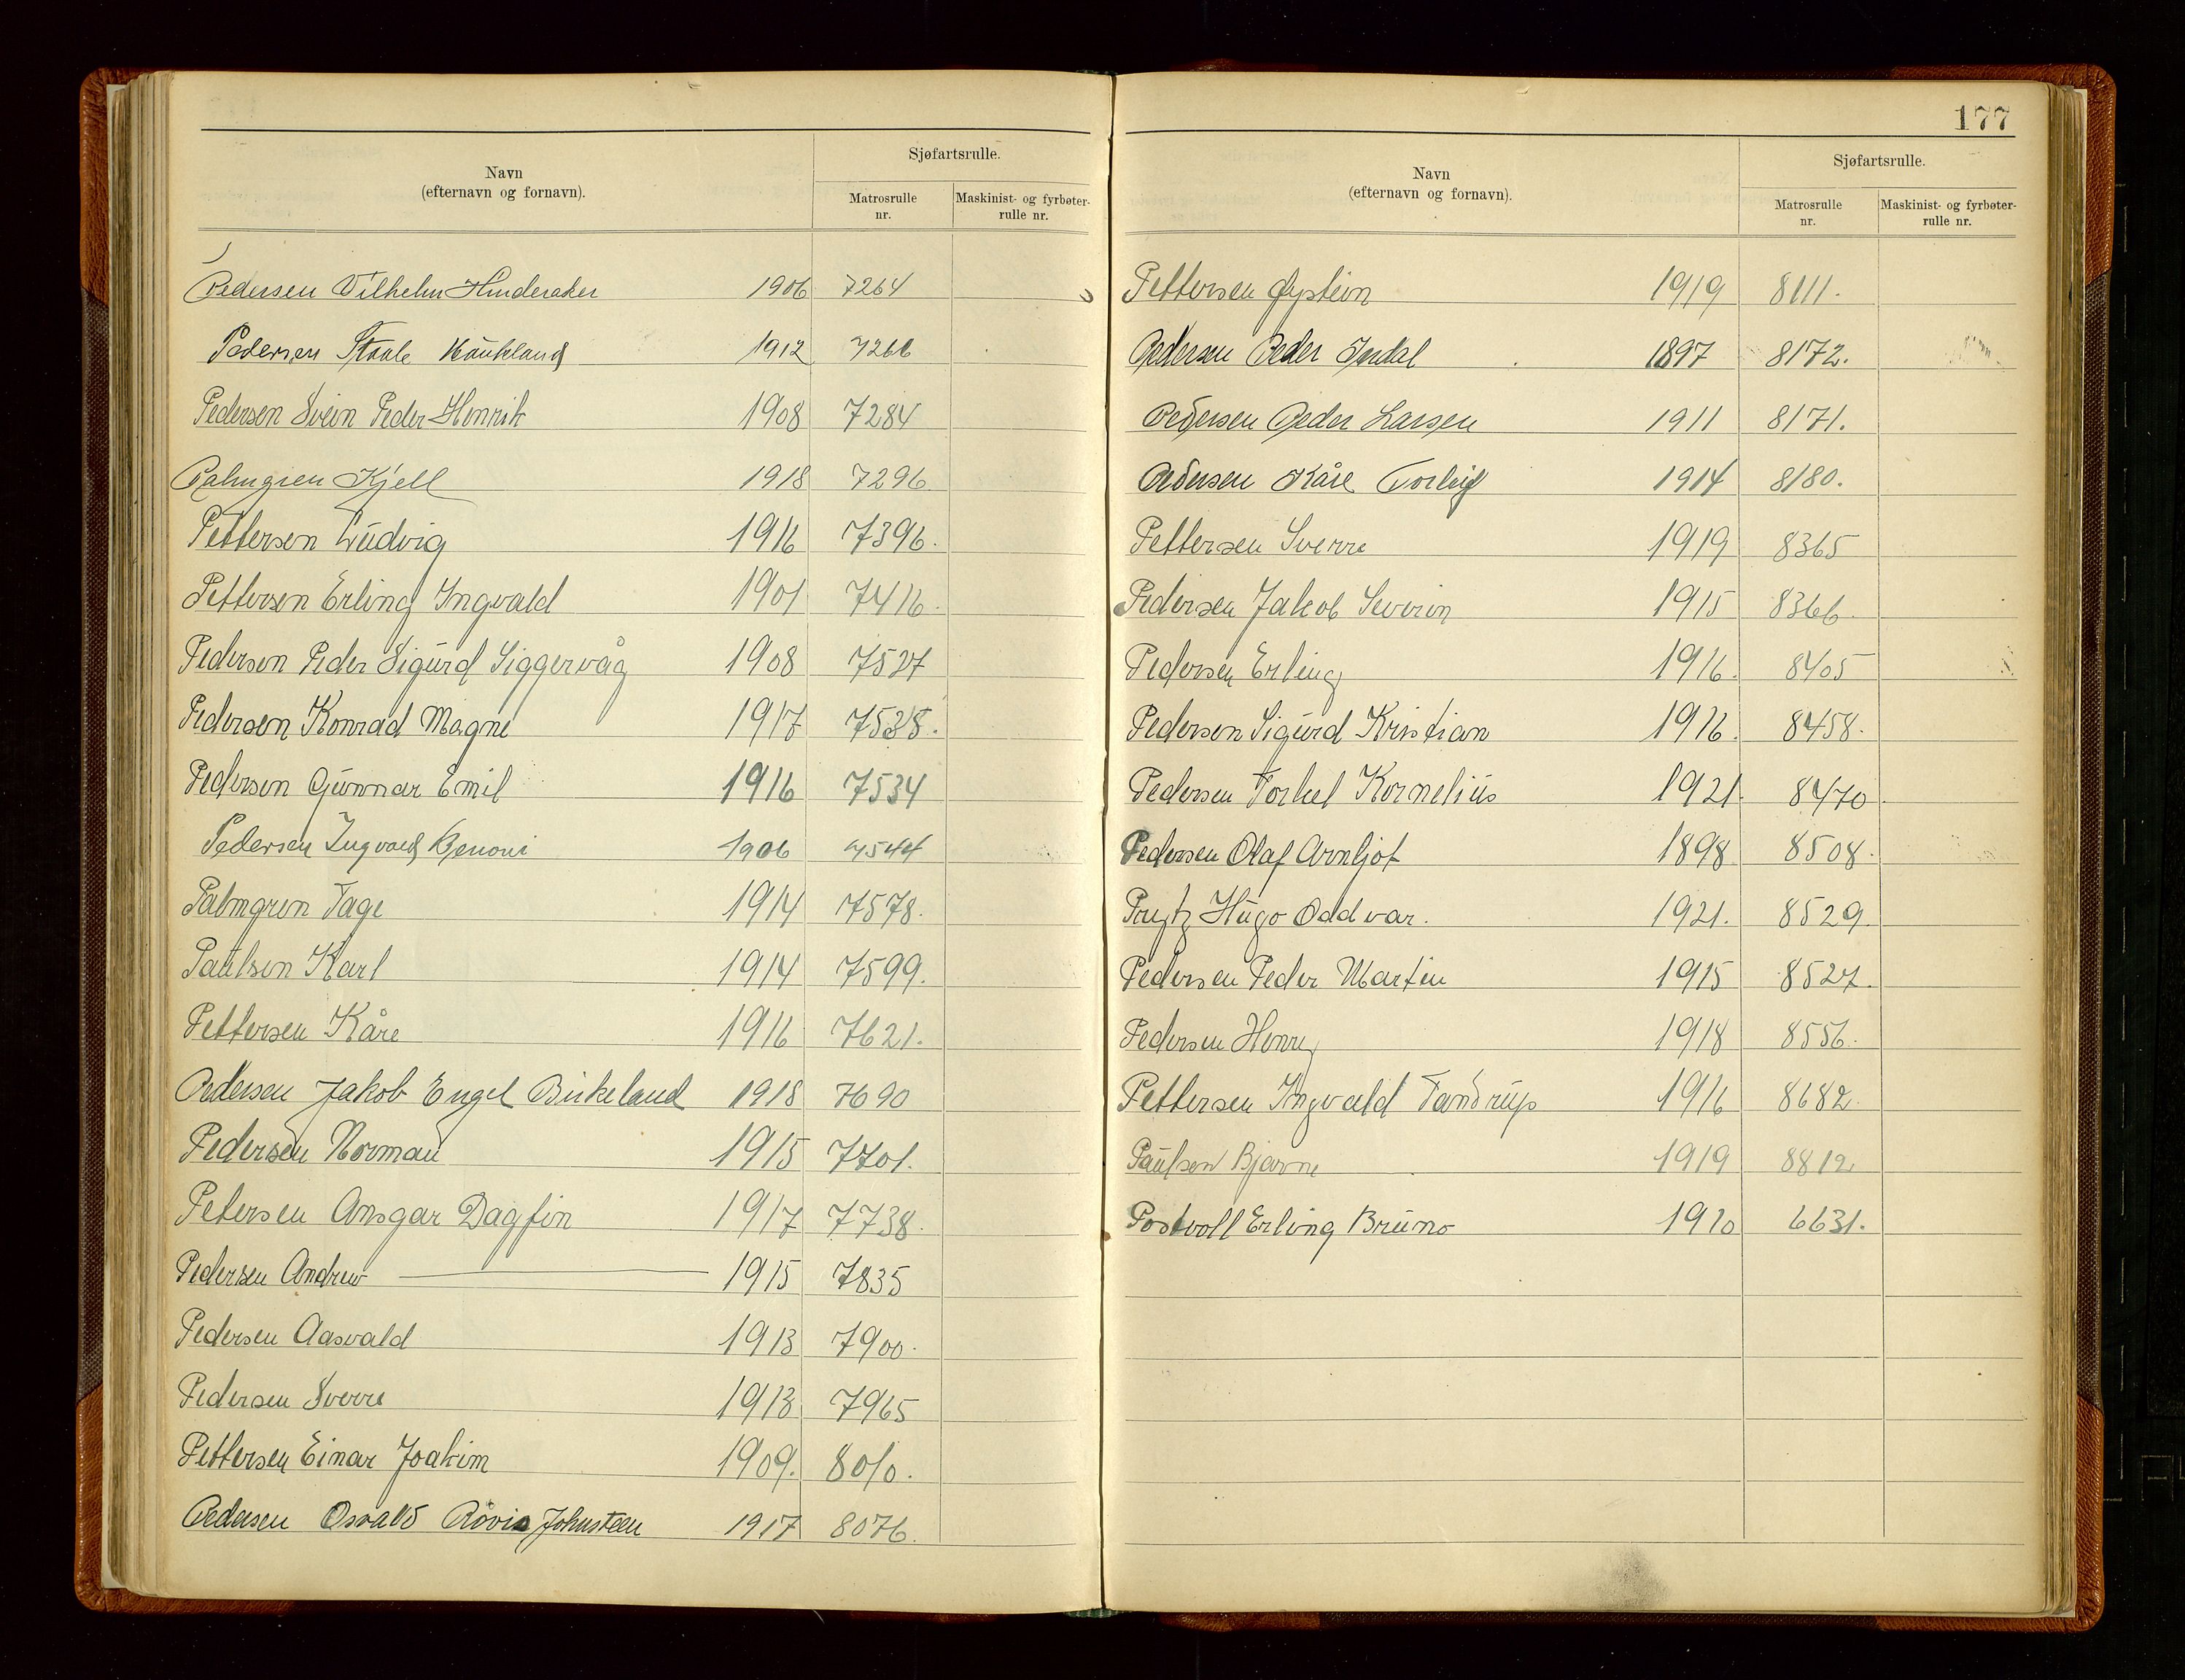 177
Navn
(efternavn og fornavn).
Sjøfartsrulle.
Matrosrulle nr.
Maskinist- og fyrbøter-rulle nr.
Pedersen Vilhelm Hinderaker 1906 7264
Pedersen Staale Haukland 1912 7266
Pedersen Svein Peder Henrik 1908 7284
Palmgren Kjell 1918 7296
Pettersen Ludvig 1916 7396.
Pettersen Erling Ingvald 1901 7416.
Pedersen Peder Sigurd Siggervåg 1908 7527
Pedersen Konrad Magne 1917 7528.
Pedersen Gunnar Emil 1916 7534
Pedersen Ingvald Benoni 1906 7544
Palmgren Tage 1914 7578.
Paulsen Karl 1914 7599.
Pettersen Kåre 1916 7621.
Pedersen Jakob Engel Birkeland 1918 7690
Pedersen Norman 1915 7701.
Petersen Ansgar Dagfin 1917 7738.
Pedersen Andrew 1915 7835
Pedersen Aasvald 1913 7900.
Pedersen Sverre 1913 7965
Pettersen Einar Joakim 1909. 8010.
Pedersen Osvald Johnsteen 1917 8076.
Navn
(efternavn og fornavn).
Sjøfartsrulle.
Matrosrulle nr.
Maskinist- og fyrbøter-rulle nr.
Pettersen Øystein 1919 8111.
Pedersen Peder Indal 1897 8172.
Pedersen Peder Larsen 1911 8171.
Pedersen Kåre Torleif 1914 8180.
Pettersen Sverre 1919 8365
Pedersen Jakob Severin 1915 8366.
Pedersen Erling 1916. 8405
Pedersen Sigurd Kristian 1916. 8458.
Pedersen Torkel Kornelius 1921. 8470.
Pedersen Olaf Arnljot 1898 8508.
Hugo Oddvar. 1921. 8529.
Pedersen Peder Martin 1915 8527.
Pedersen Henry 1918 8556.
Pettersen Ingvald Tandrup 1916 8682.
Paulsen Bjarne 1919 8812.
Postvoll Erling Bruno 1910 6631.